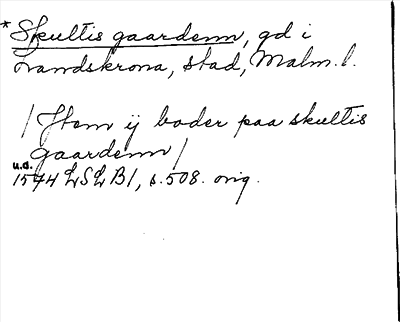 *Skultis gaardenn, gd i
Landskrona, stad, Malm. l.
/Jtem ij boder paa skultis
gaardenn/
u.a.
1574 LSLB1, s. 508. orig.